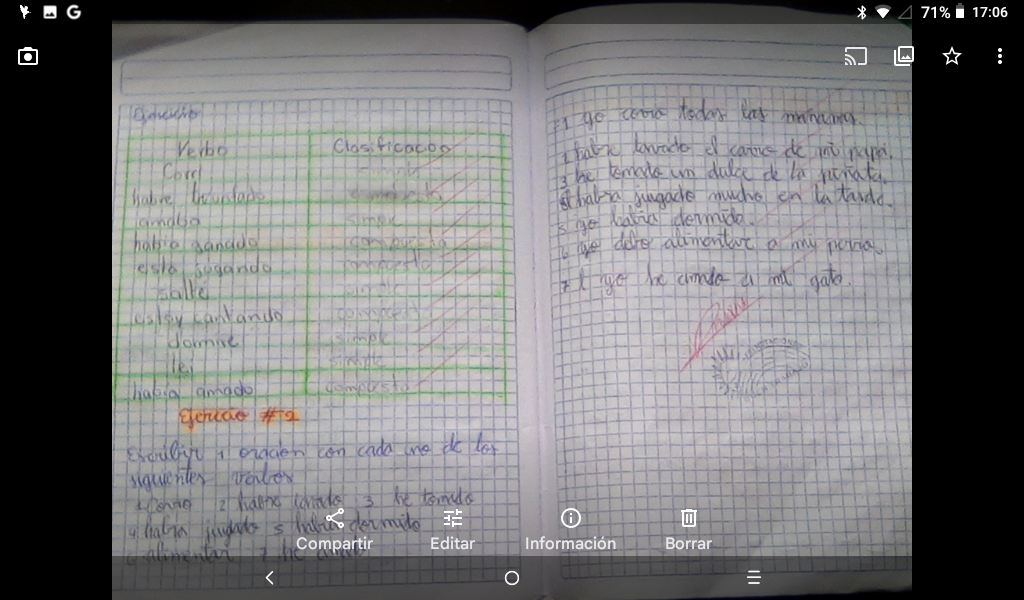 71% 17:06
Ejercicio
Verbo Clasificacion
Corri
habre levantado
amaba simple
habia ganado compuesta
está jugando compuesto
salte
estoy cantando
dormire simple
lei simple
habia amado compuesto
Ejercicio #2
Escribir 1 oracion con cada uno de los
siguientes verbos
1 como 2 habre lavado 3 he tomado
4 habra jugado 5 habia dormido
6 alimentar 7 he
1 yo como todas las mañanas.
2 habre lavado el carro de mi papá.
3 he tomado un dulce de la piñata.
4 habra jugado mucho en la tarde.
5 yo habia dormido.
6 yo debo alimentar a my perra.
7 yo he amado a mi gato.
Compartir Editar Información Borrar